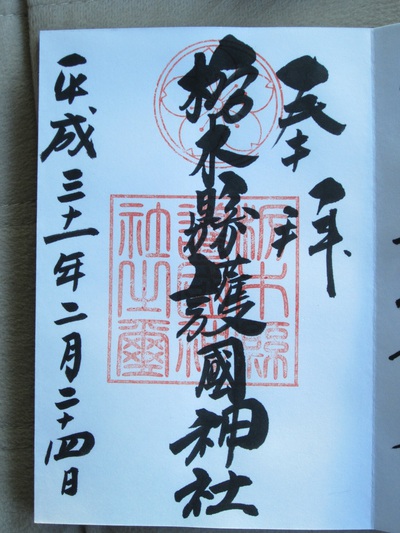 奉拝
栃木縣護國神社
平成三十一年二月二十四日
栃木縣
護國神
社之璽